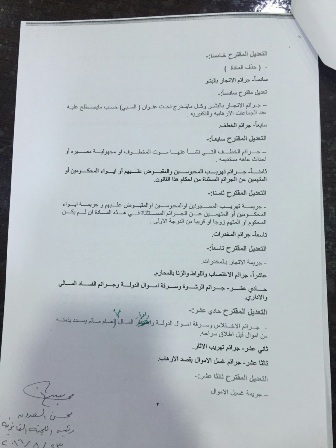 التعديل المقترح خامسا:-
- ( حذف المادة )
سادساً- جرائم الاتجار بالبشر
تعديل مقترح سادسا:-
- جرائم الاتجار بالبشر وكل مايندرج تحت عنوان ( السبي) حسب مايصطلح عليه
عند الجماعات الارهابية والتكفيرية
سابعاً- جرائم الخطف.
التعديل المقترح سابعا:-
- جرائم الخطف التي نشأ عنها موت المخطوف او مجهولية مصيره او
احداث عاهة مستديمة.
ثامناً- جرائم تهريب المحبوسين والمقبوض عليهم او ايواء المحكومين أو
المتهمين عن الجرائم المستثناة من احكام هذا القانون.
التعديل المقترح ثامنا:-
- جريمة تهريب المسجونين اوالمحبوسين اوالمقبوض عليهم وجريمة ايواء
المحكومين أو المتهمين عن الجرائم المستثناة في هذه المادة ان لم يكن
المحكوم او المتهم زوجا او قريبا من الدرجة الاولى.
تاسعاً- جرائم المخدرات.
التعديل المقترح تاسعا:-
- جريمة الاتجار بالمخدرات.
عاشراً- جرائم الاغتصاب واللواط والزنا بالمحارم.
حادي عشر- جرائم الرشوة وسرقة اموال الدولة وجرائم الفساد المالي
والاداري.
التعديل المقترح حادي عشر:-
- جرائم الاختلاس وسرقة اموال الدولة المال العام مالم يسدد مابذمته
من اموال قبل اطلاق سراحه.
ثاني عشر- جرائم تهريب الاثار.
ثالث عشر- جرائم غسل الاموال بقصد الارهاب.
التعديل المقترح ثالثا عشر:-
- جريمة غسل الاموال